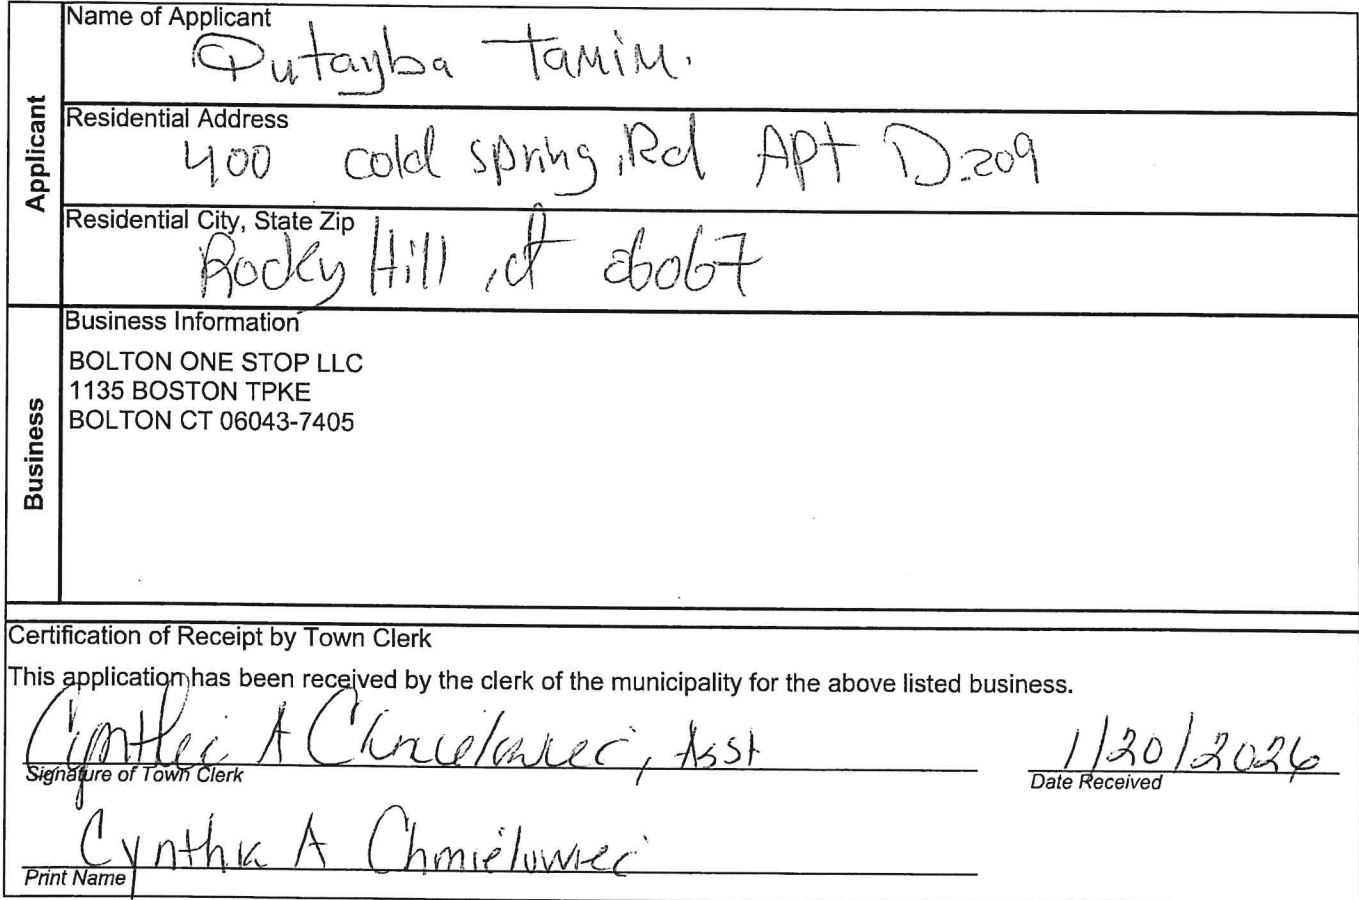 Name of Applicant
Qutayba Tamim.
Applicant
Residential Address
400 cold spring, Rd Apt D-209
Residential City, State Zip
Rocky Hill, ct 06067
Business
Business Information
BOLTON ONE STOP LLC
1135 BOSTON TPKE
BOLTON CT 06043-7405
Certification of Receipt by Town Clerk
This application has been received by the clerk of the municipality for the above listed business.
Cynthia A Chmielowiec, Asst 1/20/2026
Signature of Town Clerk Date Received
Cynthia A Chmielowiec
Print Name